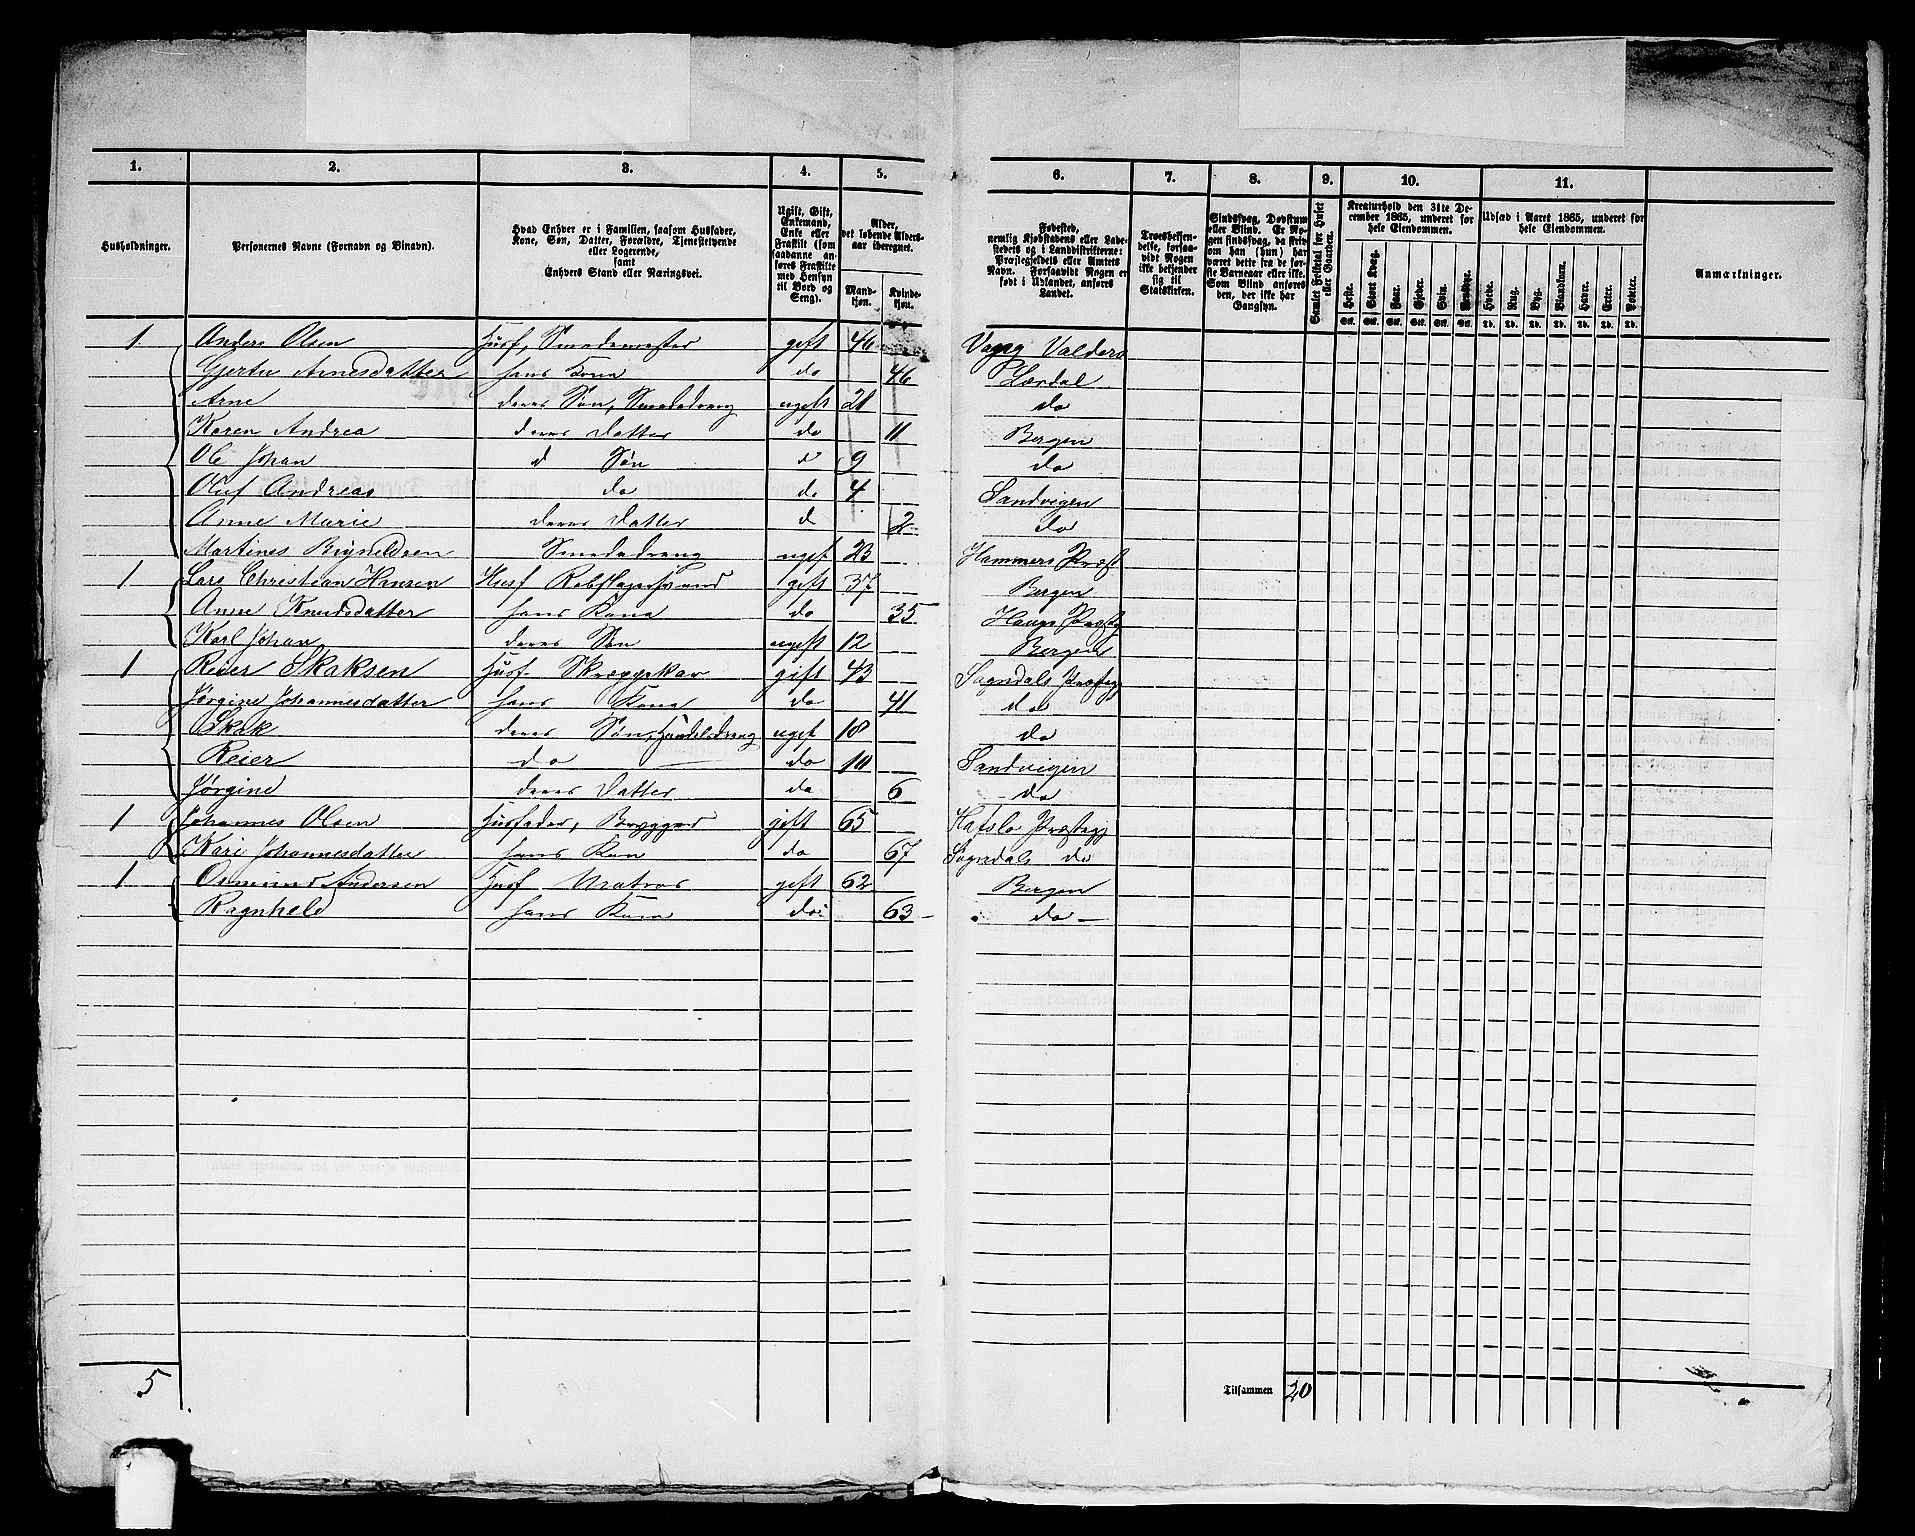 1. 2. 3. 4. 5. 6. 7. 8. 9. 10. 11.
Husholdninger.
Personernes Navne (Fornavn og Binavn).
Hvad Enhver er i Familien, saasom Husfader, Kone, Søn, Datter, Forældre, Tjenestetyende eller Logerende, samt Enhvers Stand eller Næringsvei.
Ugift, Gift, Enkemand, Enke eller Fraskilt (som saadanne anføres Fraskilte med Hensyn til Bord og Seng).
Alder, det løbende Aldersaar iberegnet.
Mandkjøn. Kvindekjøn.
Fødested, nemlig Kjøbstadens eller Ladestedets og i Landdistrikterne: Præstegjeldets eller Amtets Navn. Forsaavidt Nogen er født i Udlandet, anføres Landet.
Troesbekjendelse, forsaavidt Nogen ikke bekjender sig til Statskirken.
Sindssvag, Døvstum eller Blind. Er Nogen sindssvag, da skrives om han (hun) har været dette fra de første Barneaar eller ikke. Som Blind anføres den, der ikke har Gangsyn.
Samlet Folketal for Huset eller Gaarden.
Kreaturhold den 31te December 1865, underet for hele Eiendommen.
Heste. Stort Kvæg. Faar. Gjeder. Svin. Rensdyr.
Udsæd i Aaret 1865, underet for hele Eiendommen.
Hvede. Rug. Byg. Blandkorn. Havre. Erter. Poteter.
Anmærkninger.
1 Anders Olsen Husf, Smedemester gift 46 Valders
Gjertru Arnesdatter hans Kona do 46 Lærdal
Arne deres Søn, Smededreng ugift 21 do
Karen Andrea deres Datter do 11 Bergen
Ole Johan d Søn d 9 do
Oluf Andreas do do 4 Sandvigen
Anne Marie deres Datter d 2 do
Martines Smededreng ugift 23 Hammers Præst
1 Lars Christian Hansen Husf gift 37 Bergen
Anne Knudsdatter hans Kona do 35 Præstg
Karl Johan deres Søn ugift 12 Bergen
1 Reier Skaksen Husf gift 43 Sogndals Præsteg
Jørgine Johannesdatter hans Kona do 41 do
Skak deres Søn, Handelsdreng ugift 18 do
Reier do do 10 Sandvigen
Jørgine deres Datter do 6 do
1 Johannes Olsen Husfader, gift 65 Hafslo Præstegj
Kari Johannesdatter hans Kon do 67 Sogndals do
1 Andersen Husf Matros gift 62 Bergen
Ragnhele hans Kona do 63 do
5 Tilsammen 20